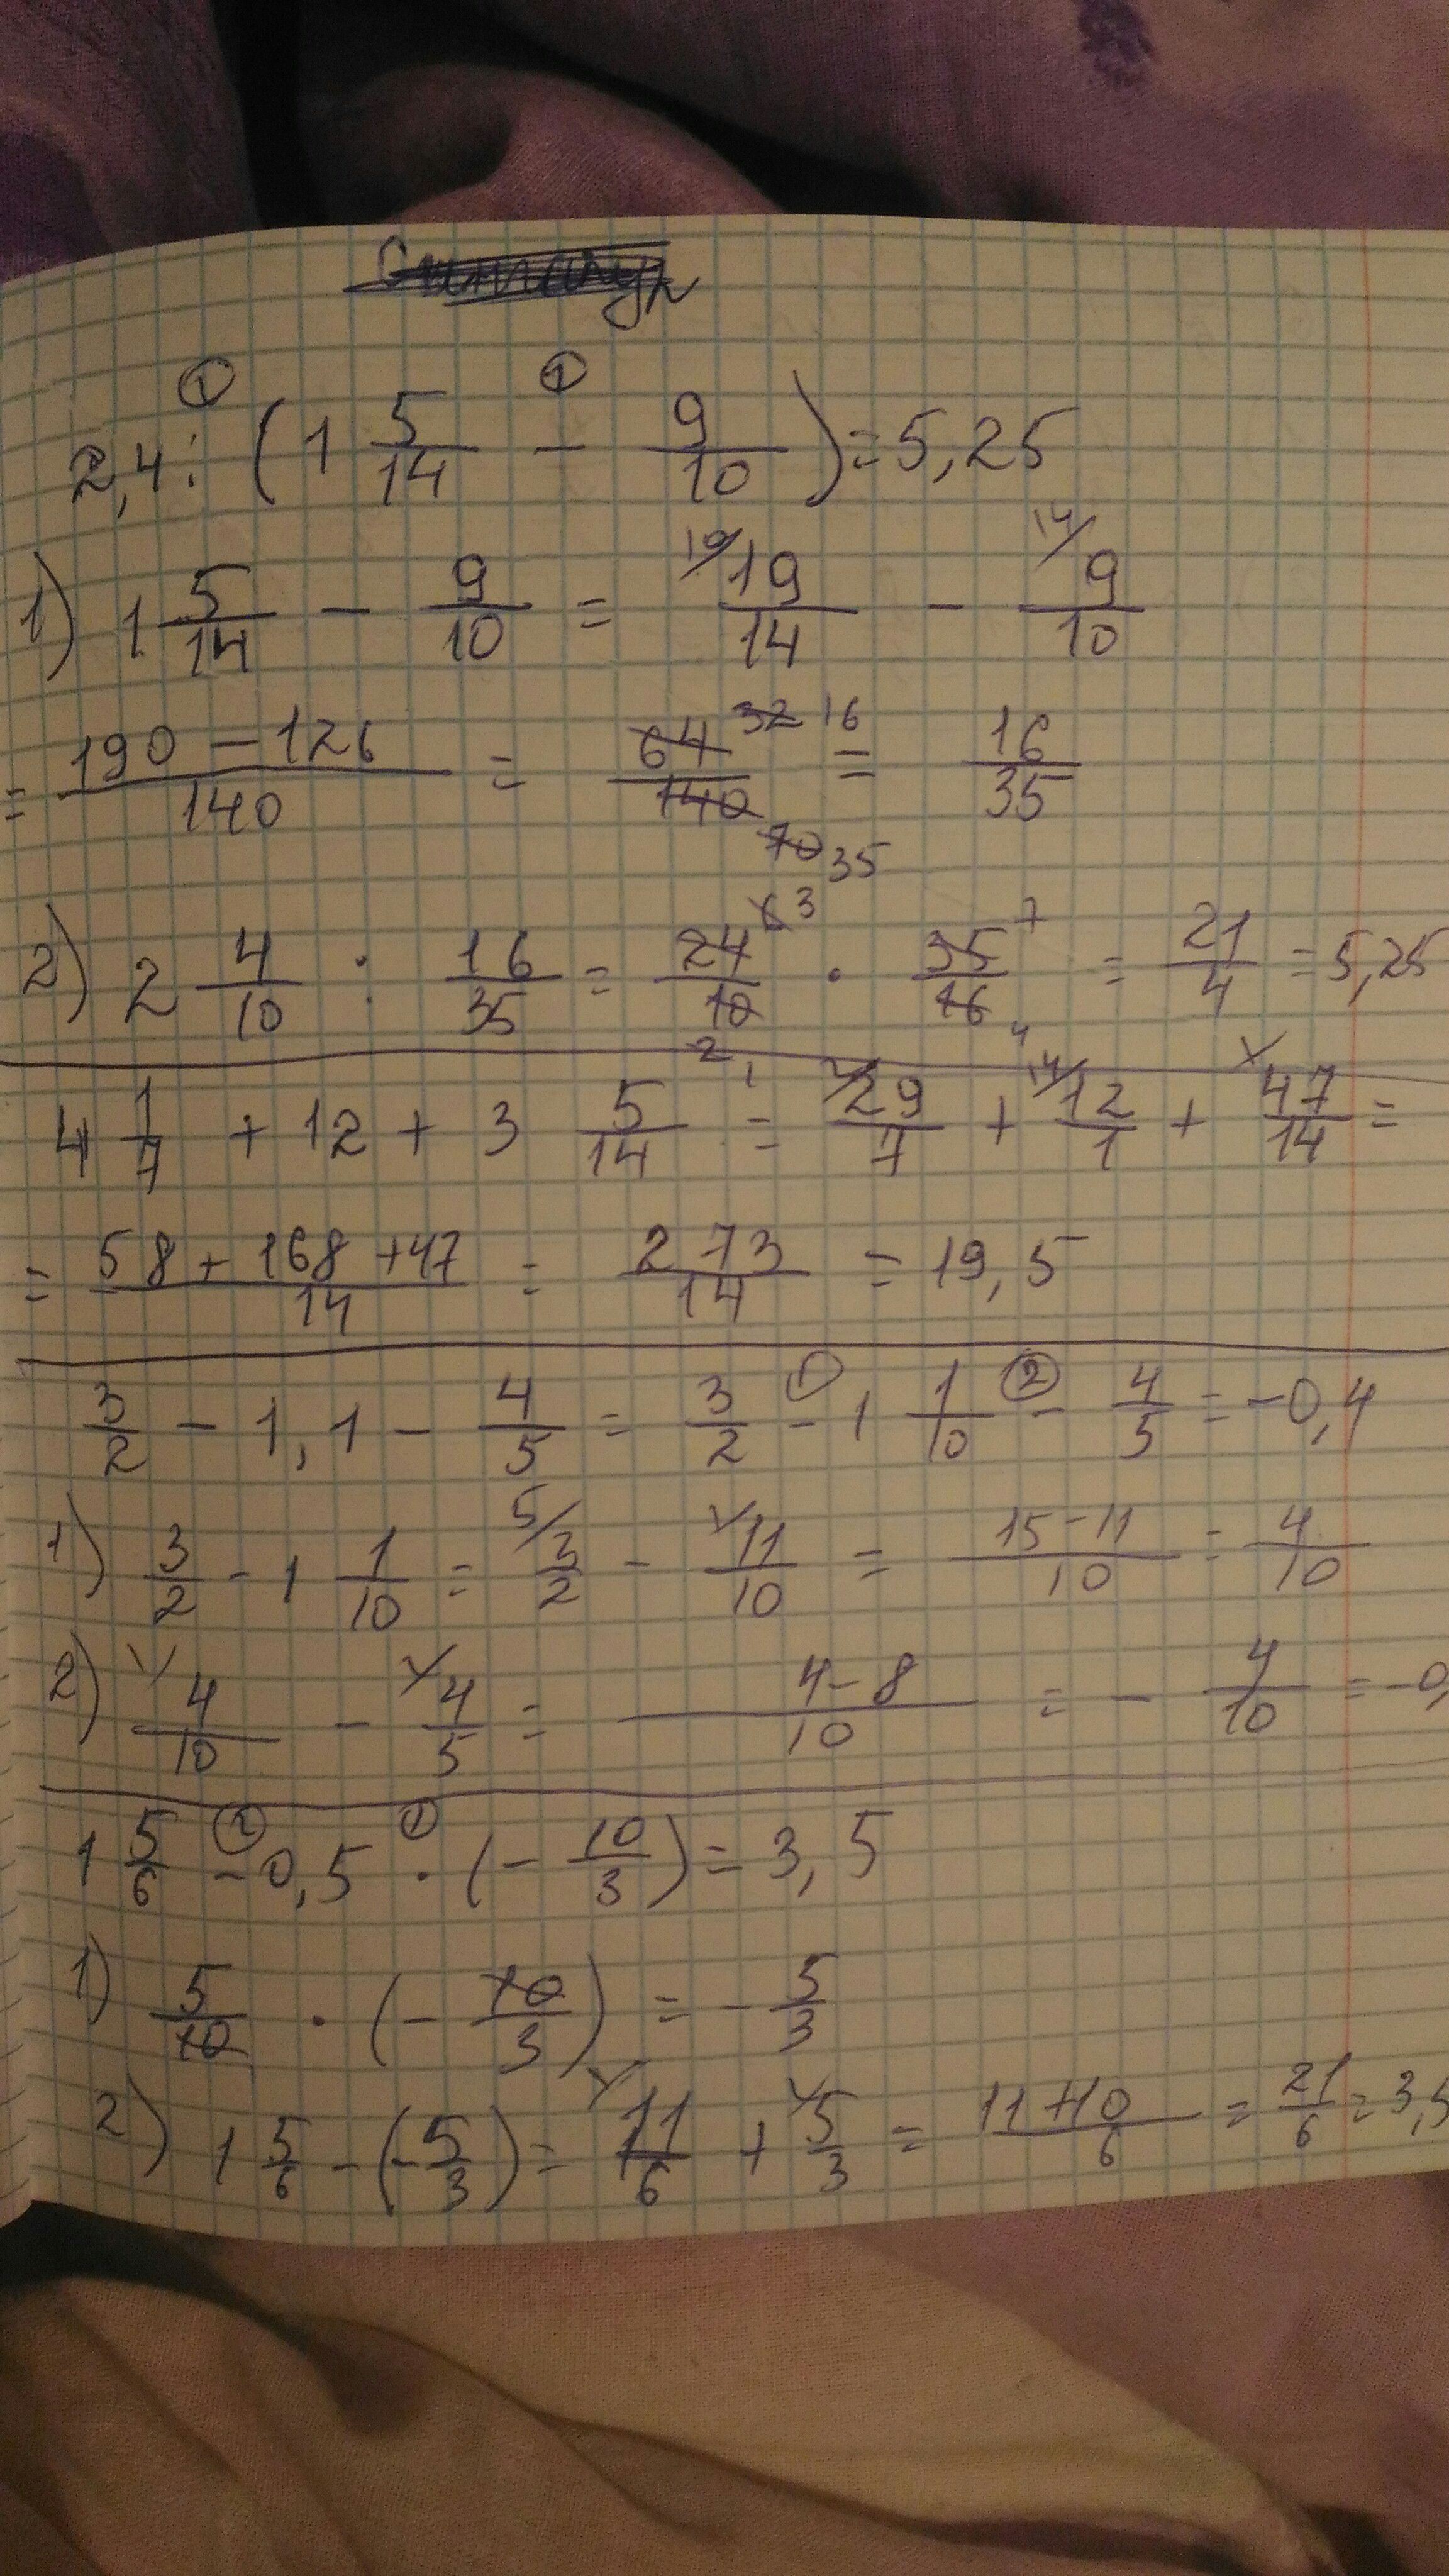 2,4 : (1 5/14 - 9/10) = 5,25
1) 1 5/14 - 9/10 = 10/ 19/14 - 14/ 9/10
= (190 - 126)/140 = 64/140 32 16 70 35 = 16/35
2) 2 4/10 : 16/35 = 24/10 · 35/16 = 21/4 = 5,25
4 1/7 + 12 + 3 5/14 = 29/7 + 14/ 12/1 + 47/14 =
= (58 + 168 + 47)/14 = 273/14 = 19,5
3/2 - 1,1 - 4/5 = 3/2 - 1 1/10 - 4/5 = -0,4
1) 3/2 - 1 1/10 = 5/ 3/2 - 11/10 = (15 - 11)/10 = 4/10
2) 4/10 - 4/5 = (4 - 8)/10 = - 4/10 = -0,
1 5/6 - 0,5 · (- 10/3) = 3,5
1) 5/10 · (- 10/3) = - 5/3
2) 1 5/6 - (- 5/3) = 11/6 + 5/3 = (11 + 10)/6 = 21/6 = 3,5